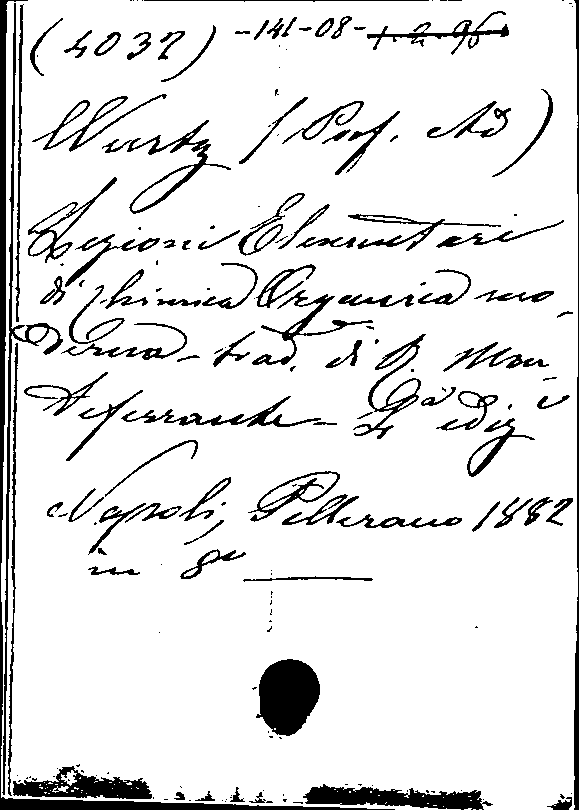 (4032) -141-08- 1.2.96
Wurtz (Prof. Ad)
Lezioni Elementari
di Chimica Organica mo-
derna - trad. di P. Mon-
teferrante - 2ª edizᵉ
Napoli, Pellerano 1882
in 8°